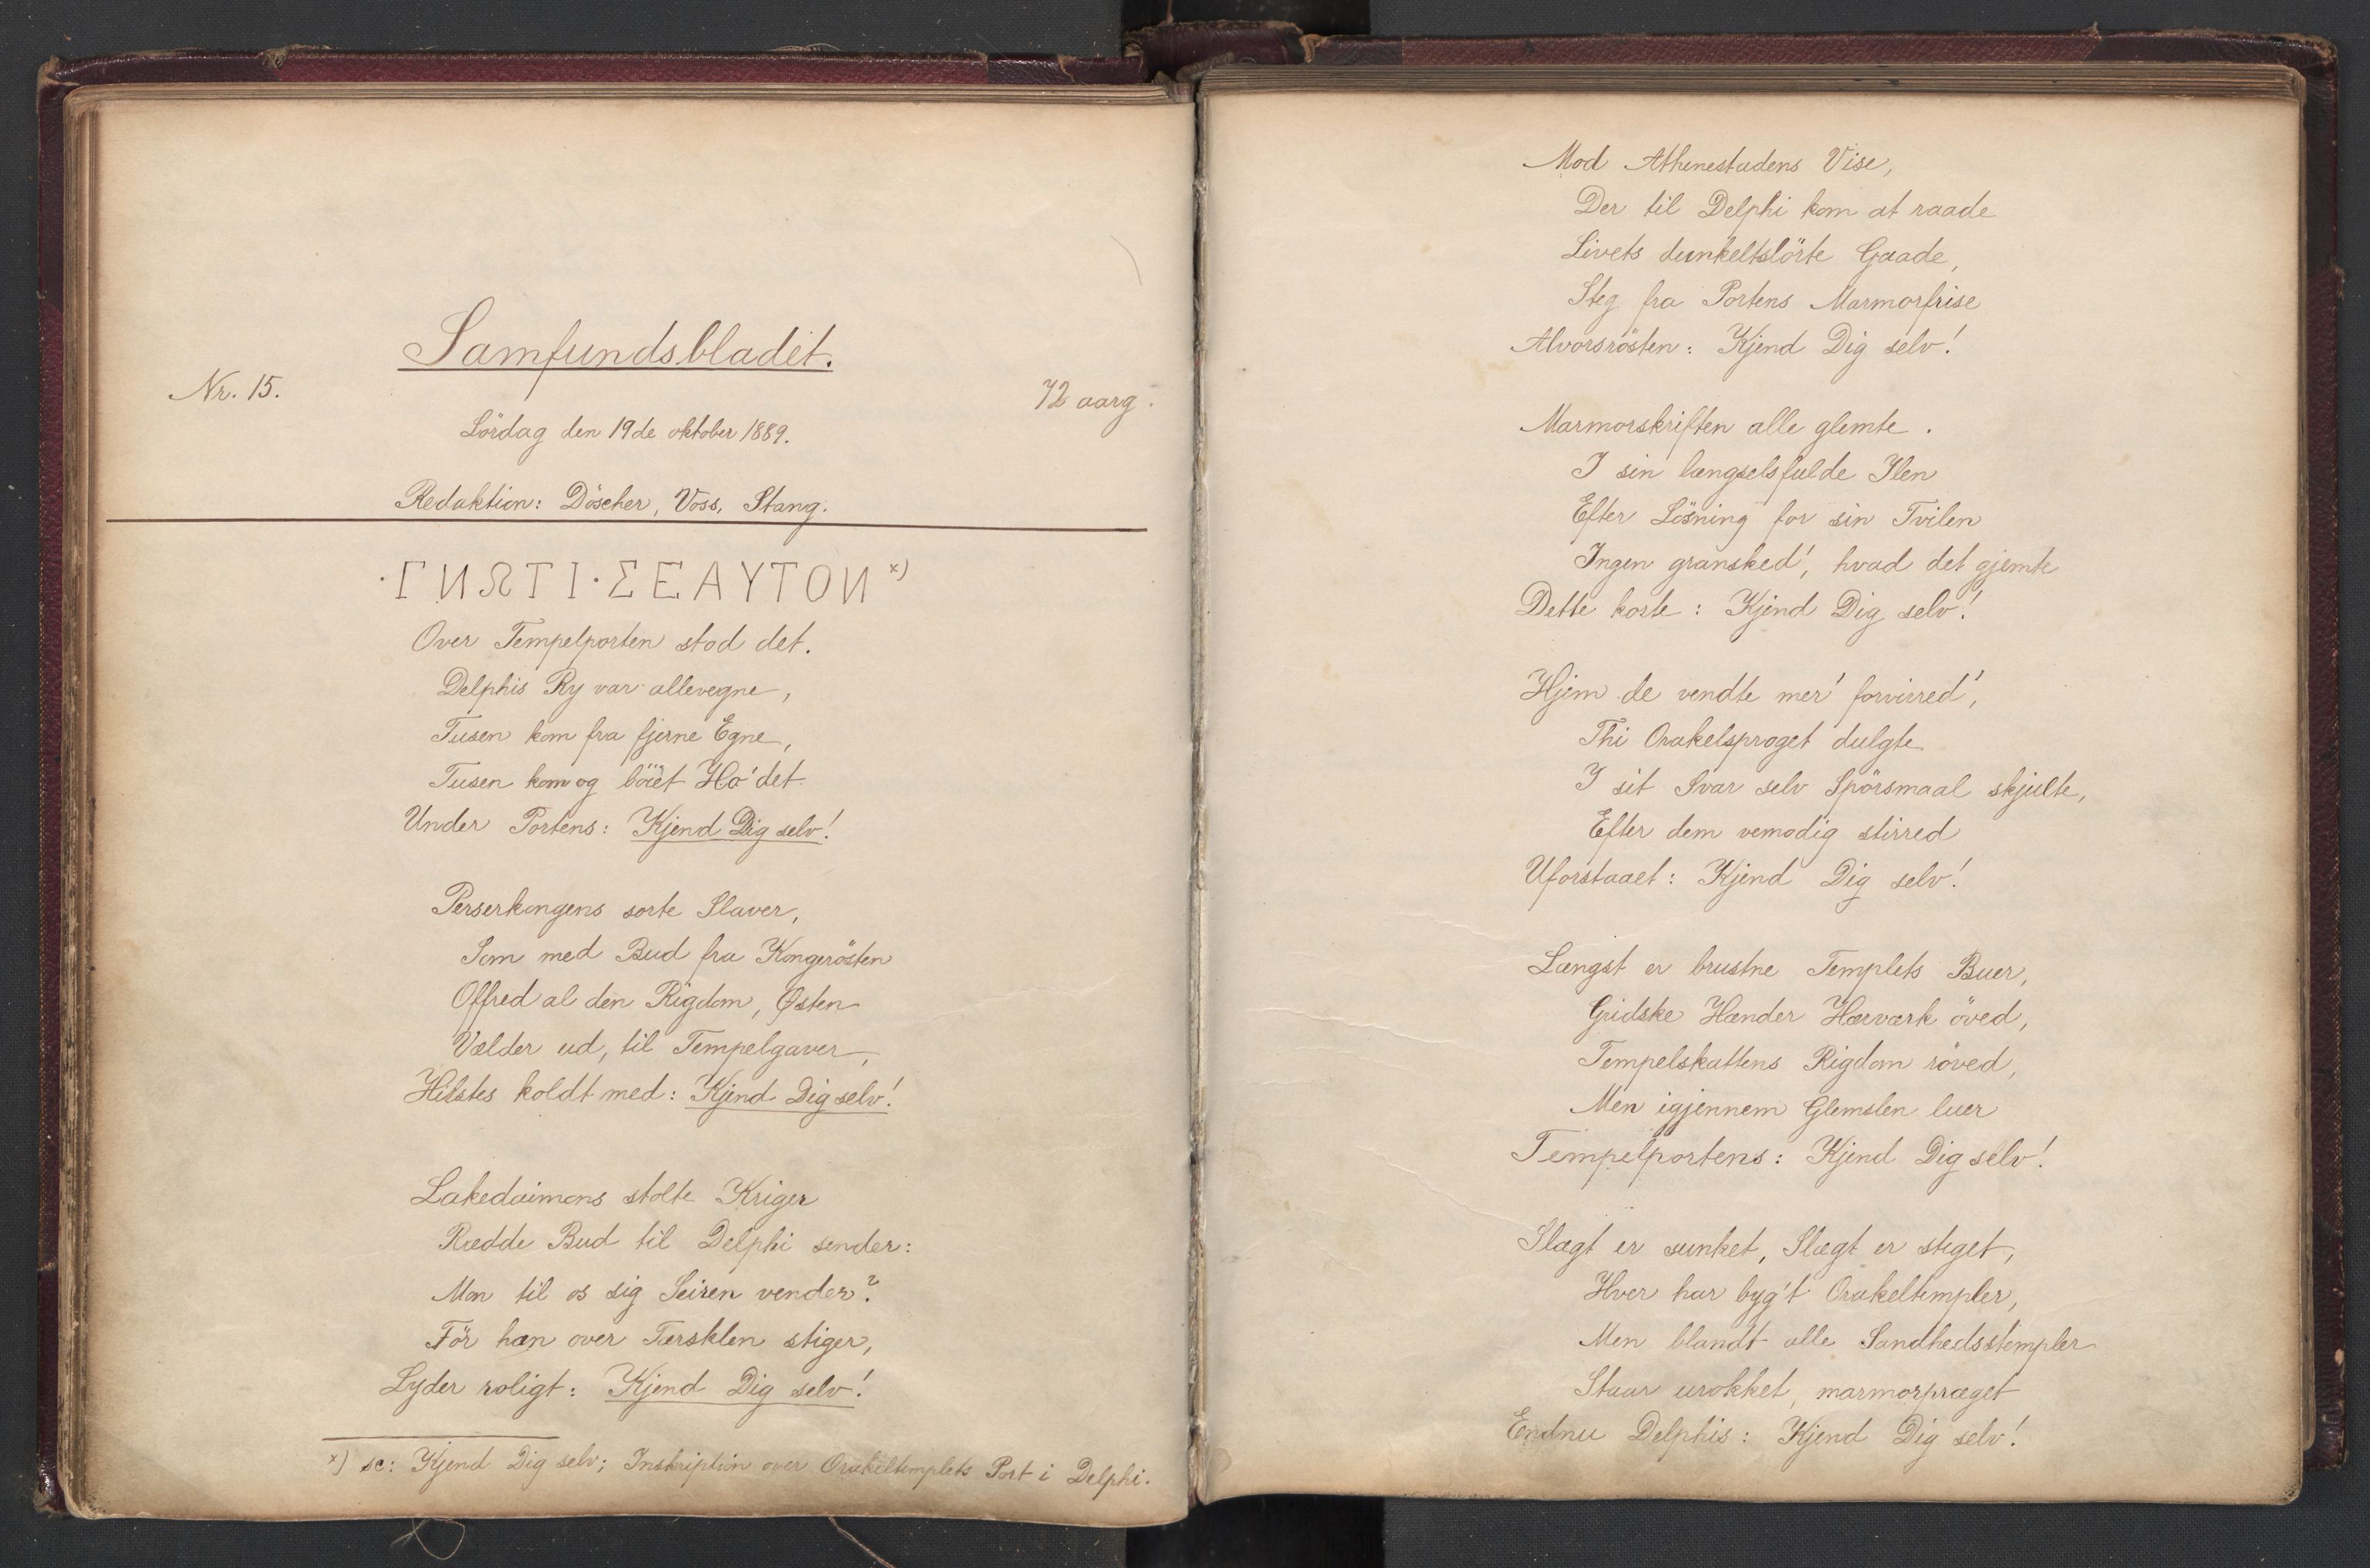 Samfundsbladet.
Nr. 15.
72 aarg.
Lördag den 19de oktober 1889.
Redaktion: Döscher, Voss, Stang.
·ΓΝΩΤΙ·ΣΕΑΥΤΟΝ x)
Over Tempelporten stod det.
Delphis Ry var allevegne,
Tusen kom fra fjerne Egne,
Tusen kom og böiet Ho'det
Under Portens: Kjend Dig selv!
Perserkongens sorte Slaver,
Som med Bud fra Kongerösten
Offred al den Rigdom, Østen
Vælder ud, til Tempelgaver,
Hilstes koldt med: Kjend Dig selv!
Lakedaimons stolte Kriger
Rædde Bud til Delphi sender:
Mon til os sig Seiren vender?
För han over Tærsklen stiger,
Lyder roligt: Kjend Dig selv!
x) sc: Kjend Dig selv; Inskription over Orakeltemplets Port i Delphi.
Mod Athenestadens Vise,
Der til Delphi kom at raade
Livets dunkeltslörte Gaade,
Steg fra Portens Marmorfrise
Alvorsrösten: Kjend Dig selv!
Marmorskriften alle glemte.
I sin længselsfulde Ilen
Efter Lösning for sin Tvilen
Ingen gransked', hvad det gjemte
Dette korte: Kjend Dig selv!
Hjem de vendte mer' forvirred',
Thi Orakelsproget dulgte
I sit Svar selv Spörsmaal skjulte,
Efter dem vemodig stirred
Uforstaaet: Kjend Dig selv!
Længst er brustne Templets Buer,
Gridske Hænder Hærværk öved,
Tempelskattens Rigdom röved,
Men igjennem Glemslen luer
Tempelportens: Kjend Dig selv!
Slægt er sunket, Slægt er steget,
Hver har byg't Orakeltempler,
Men blandt alle Sandhedsstempler
Staar urokket, marmorpræget
Endnu Delphis: Kjend Dig selv!